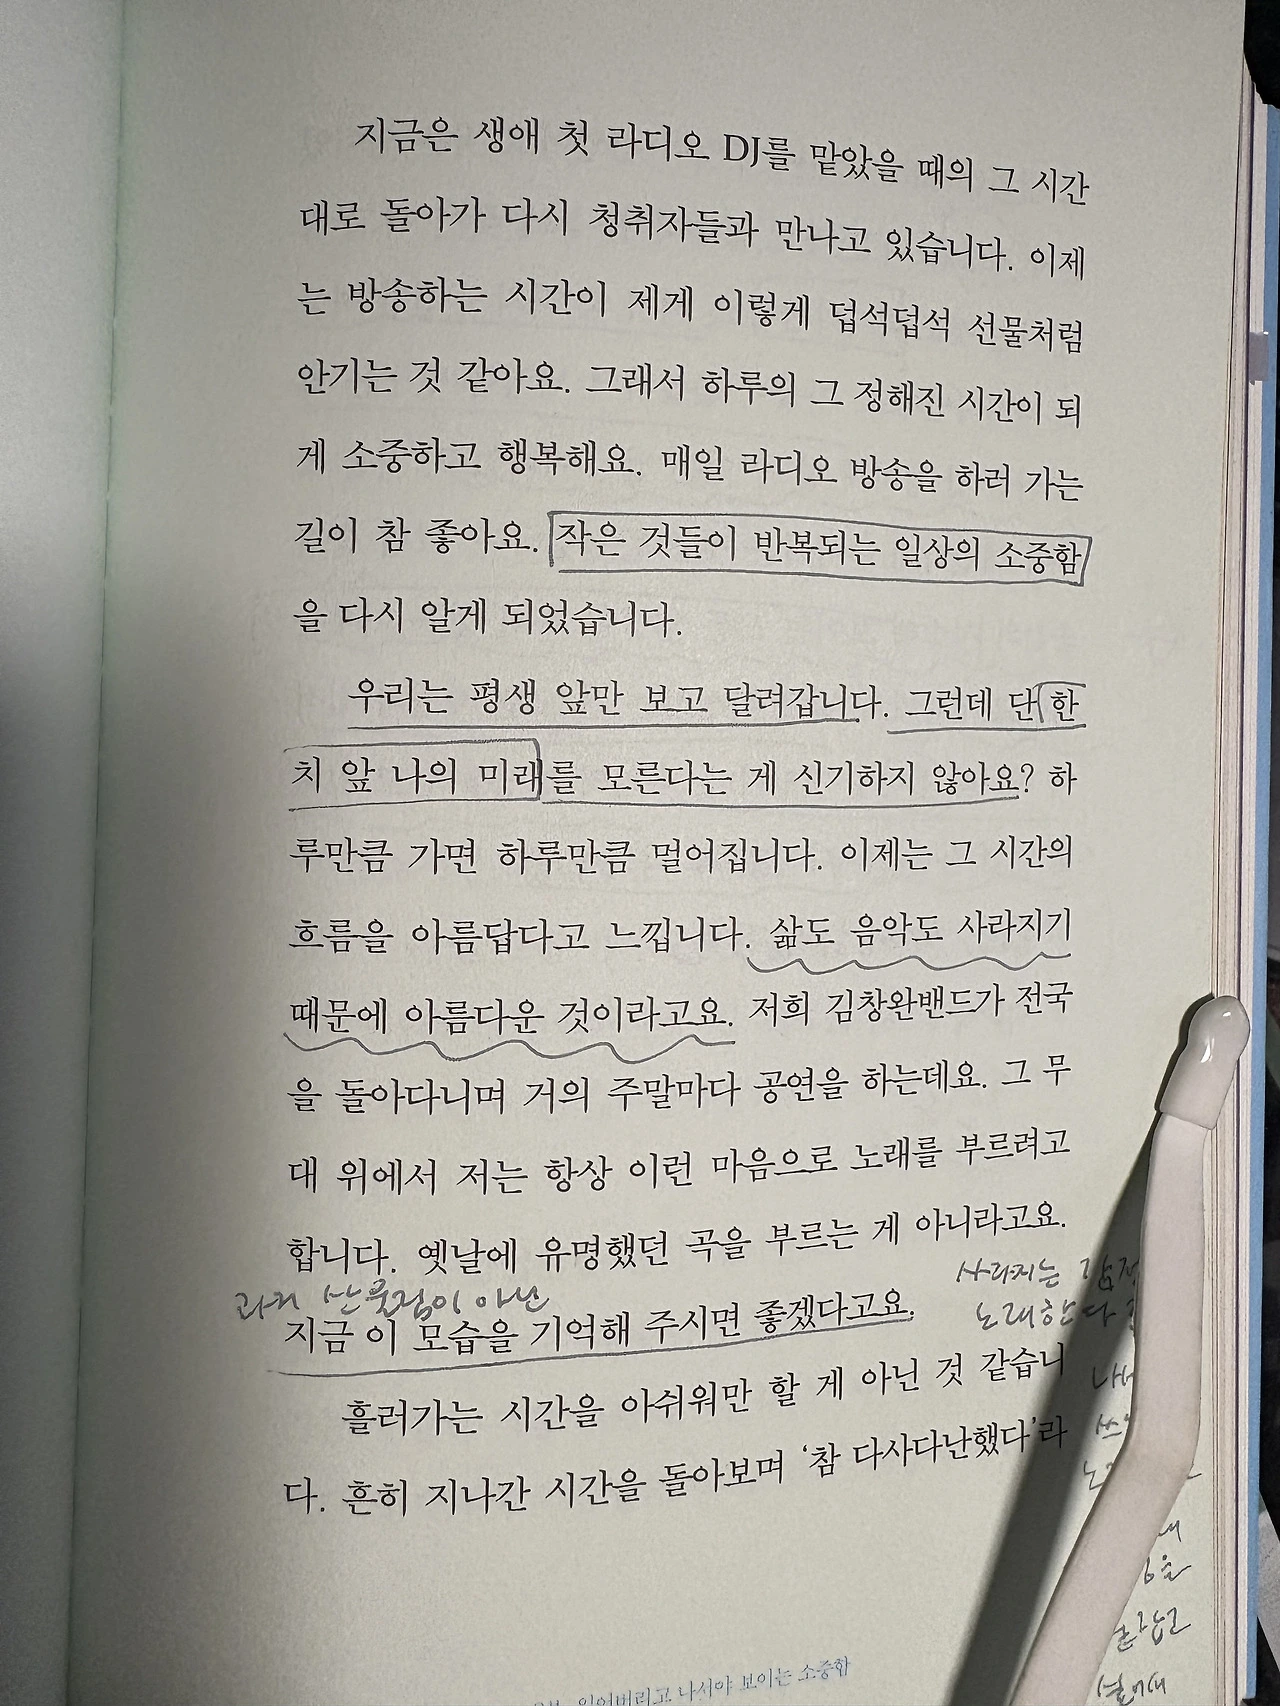 지금은 생애 첫 라디오 DJ를 맡았을 때의 그 시간
대로 돌아가 다시 청취자들과 만나고 있습니다. 이제
는 방송하는 시간이 제게 이렇게 덥석덥석 선물처럼
안기는 것 같아요. 그래서 하루의 그 정해진 시간이 되
게 소중하고 행복해요. 매일 라디오 방송을 하러 가는
길이 참 좋아요. 작은 것들이 반복되는 일상의 소중함
을 다시 알게 되었습니다.
우리는 평생 앞만 보고 달려갑니다. 그런데 단 한
치 앞 나의 미래를 모른다는 게 신기하지 않아요? 하
루만큼 가면 하루만큼 멀어집니다. 이제는 그 시간의
흐름을 아름답다고 느낍니다. 삶도 음악도 사라지기
때문에 아름다운 것이라고요. 저희 김창완밴드가 전국
을 돌아다니며 거의 주말마다 공연을 하는데요. 그 무
대 위에서 저는 항상 이런 마음으로 노래를 부르려고
합니다. 옛날에 유명했던 곡을 부르는 게 아니라고요.
사라지는
과거 산물집이 아닌
노래한다
지금 이 모습을 기억해 주시면 좋겠다고요.
흘러가는 시간을 아쉬워만 할 게 아닌 것 같습니
다. 흔히 지나간 시간을 돌아보며 ‘참 다사다난했다’라
잃어버리고 나서야 보이는 소중함